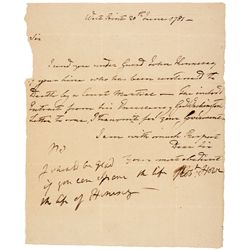 West Point 20th June 1781
Sir
I send you under Guard John Hennessey
of your line who has been sentenced to
Death by a Court Martial — the inclosed
Extract from his Excellency Genl Washington
Letter to me, I transmit for your Government
I am with much Respect
Dear Sir
your most obedient
Robt Howe
I should be glad
if you can spare the life
the life of Hennesey